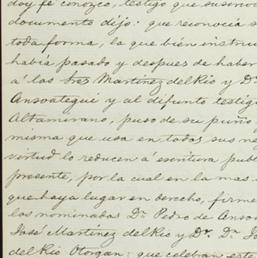 doy fe conozco, testigo que suscribe
documento dijo: que reconocia s
toda forma, la que bien instru
habia pasado y despues de haber
a los Sres Martinez del Rio y Dn
Ansoategui y al difunto testig
Altamirano, puso de su puño
misma que usa en todos sus ne
virtud lo reducen a escritura pub
presente, por la cual en la mas
que haya lugar en derecho, firme
los nominados Dn Pedro de Anso
José Martinez del Rio y Dr. Dn Jo
del Rio Otorgan: que celebran este